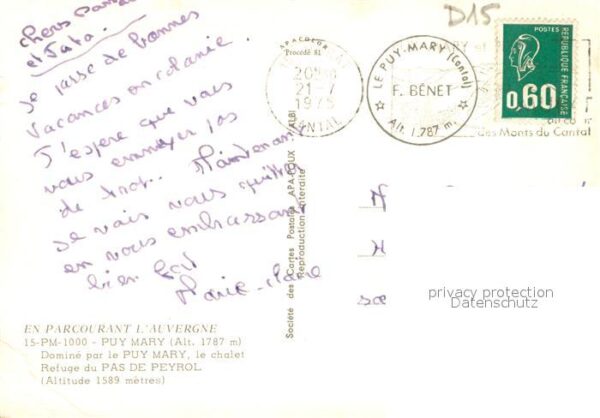 D15
chers
et Tata.
Je passe de bonnes
Vacances en colonie.
J'espère que vous
vous ennuyer pas
de trop. Maintenant
Je vais vous quitter
en vous embrassant
bien fort
Marie-
APACOLOR
Procédé 81
20
21-7
1975
CANTAL
LE PUY-MARY (Cantal)
F. BÉNET
Alt. 1.787 m.
des Monts du Cantal
POSTES
REPUBLIQUE FRANÇAISE
0,60
Société des Cartes Postales APA-POUX - ALBI
Reproduction interdite
privacy protection
Datenschutz
EN PARCOURANT L'AUVERGNE
15-PM-1000 - PUY MARY (Alt. 1787 m)
Dominé par le PUY MARY, le chalet
Refuge du PAS DE PEYROL
(Altitude 1589 mètres)